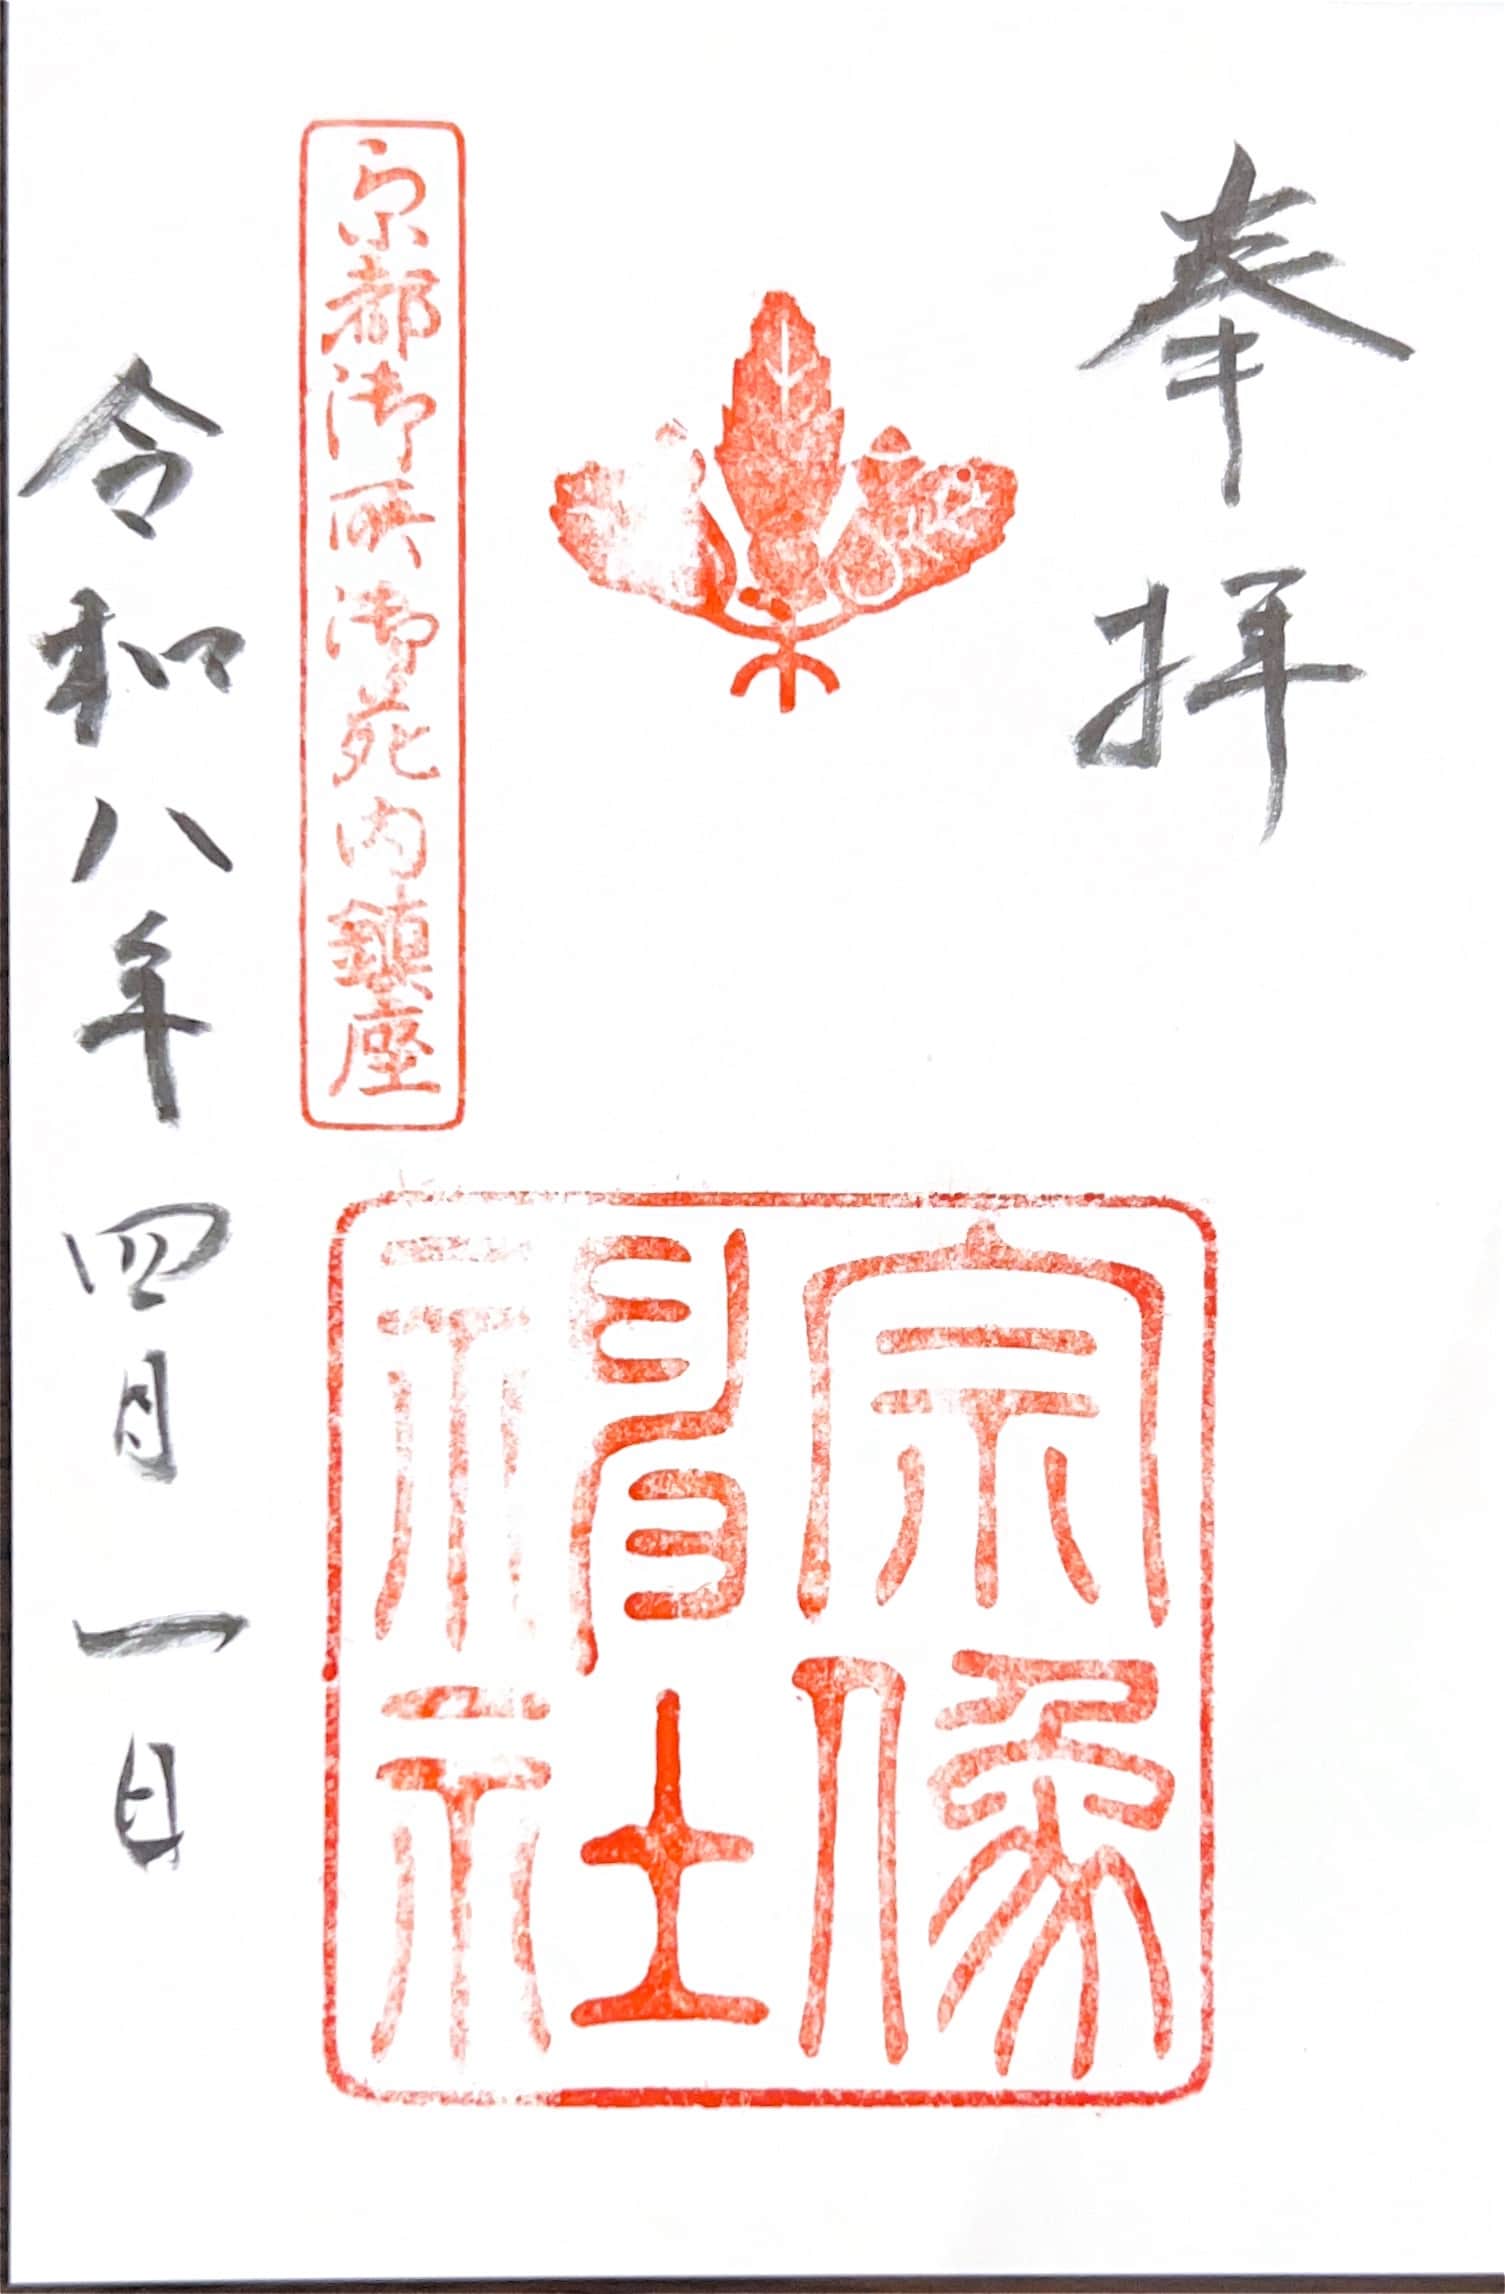 奉拝
宗像
神社
京都御所御苑内鎮座
令和八年四月一日